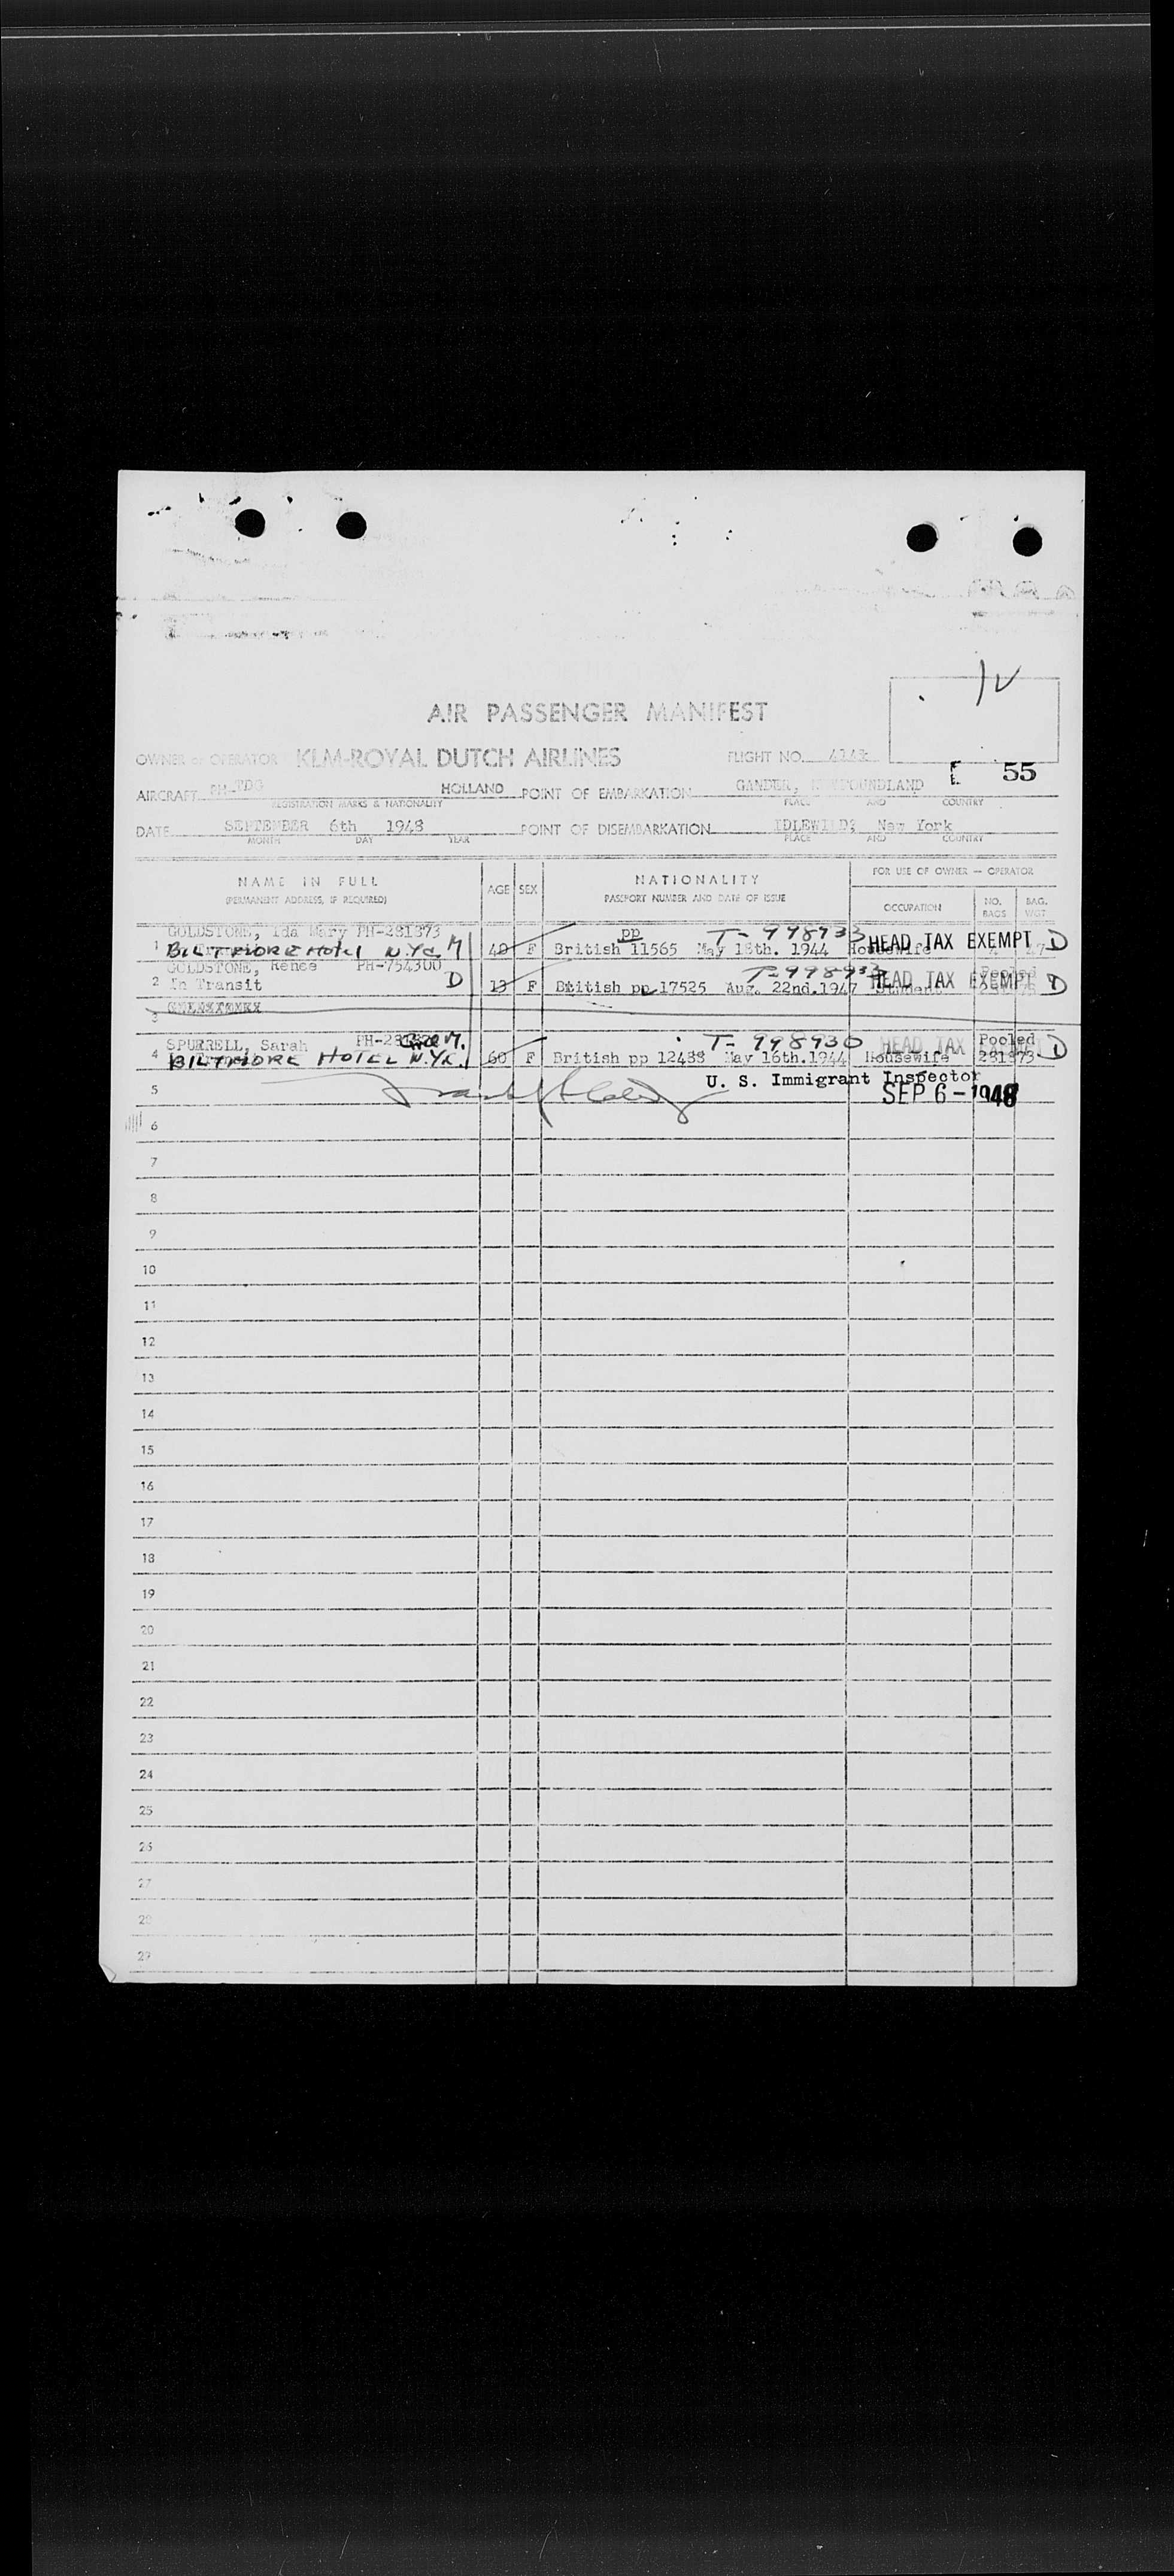 AIR PASSENGER MANIFEST
OWNER or OPERATOR KLM-ROYAL DUTCH AIRLINES FLIGHT NO.
E 55
AIRCRAFT PH-TDG HOLLAND POINT OF EMBARKATION GANDER, NEWFOUNDLAND
REGISTRATION MARKS & NATIONALITY PLACE AND COUNTRY
DATE SEPTEMBER 6th 1948 POINT OF DISEMBARKATION IDLEWILD, New York
MONTH DAY YEAR PLACE AND COUNTRY
NAME IN FULL AGE SEX NATIONALITY FOR USE OF OWNER — OPERATOR
(PERMANENT ADDRESS, IF REQUIRED) PASSPORT NUMBER AND DATE OF ISSUE OCCUPATION NO. BAGS BAG. WGT.
GOLDSTONE, Ida Mary PH-281873 pp T-998933
1 BILTMORE Hotel N.Y.C. M 40 F British 11565 May 18th. 1944 Housewife HEAD TAX EXEMPT 47 D
GOLDSTONE, Renee PH-754300 T-998932 Pooled
2 In Transit D 13 F British pp 17525 Aug. 22nd.1947 Student HEAD TAX EXEMPT D
3
SPURRELL, Sarah M. T-998930 HEAD TAX Pooled
4 BILTMORE HOTEL N.Y.C. 60 F British pp 12488 May 16th.1944 Housewife 281873 D
U. S. Immigrant Inspector
5 SEP 6-1948
6
7
8
9
10
11
12
13
14
15
16
17
18
19
20
21
22
23
24
25
26
27
28
29